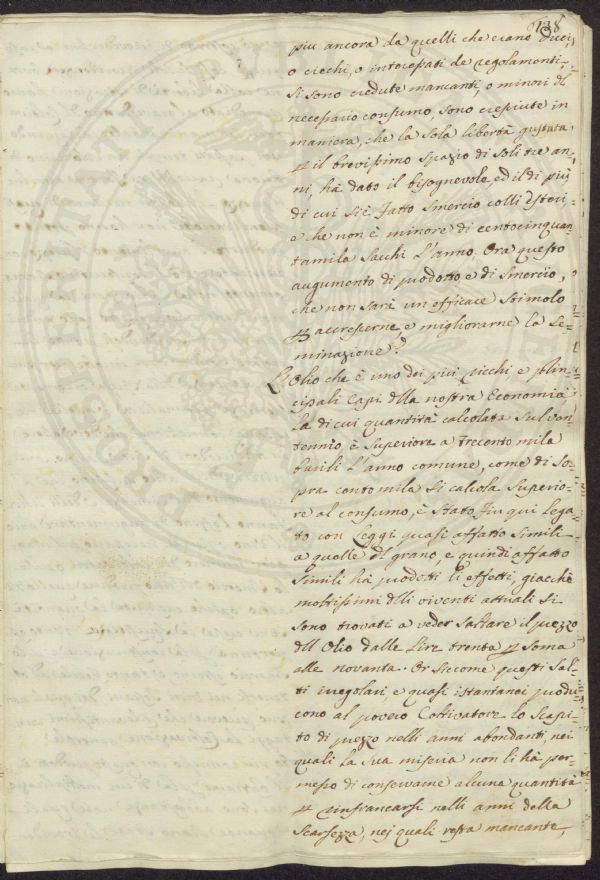 138
piu ancora da quelli che erano
o ciechi, o intorepati de regolamenti,
si sono credute mancanti o minori del
necessario consumo, sono cresciute in
maniera, che la sola libertà gustata
p il brevissimo spazio di soli tre an-
ni, ha dato il bisognevole, ed il di più
di cui si è fatto smercio colli Esteri
e che non è minore di centocinquan-
tamila Sacchi l'anno. Ora questo
augumento di prodotto e di smercio,
che non sarà un efficace stimolo
p accrescerne e migliorarne la Se-
minazione?
L'Olio che è uno dei piu ricchi, e prin-
cipali Capi della nostra Economia
la di cui quantità calcolata sul ven-
tennio è superiore a trecento mila
barili l'anno comune, come di so-
pra cento mila si calcola superio-
re al consumo, è stato fin qui lega-
to con Leggi quasi affatto simili
a quelle del grano, e quindi affatto
simili ha prodotti li effetti, giacchè
moltissimi delli viventi attuali si
sono trovati a veder saltare il prezzo
dell Olio dalle Lire trenta p soma
alle novanta. Or siccome questi sal-
ti irregolari, e quasi istantanei produ-
cono al povero Coltivatore lo scapi-
to di prezzo nelli anni abondanti nei
quali la sua miseria non li ha per-
messo di conservarne alcuna quantità
p rinfrancarsi nelli anni della
Scarsezza, nei quali resta mancante,